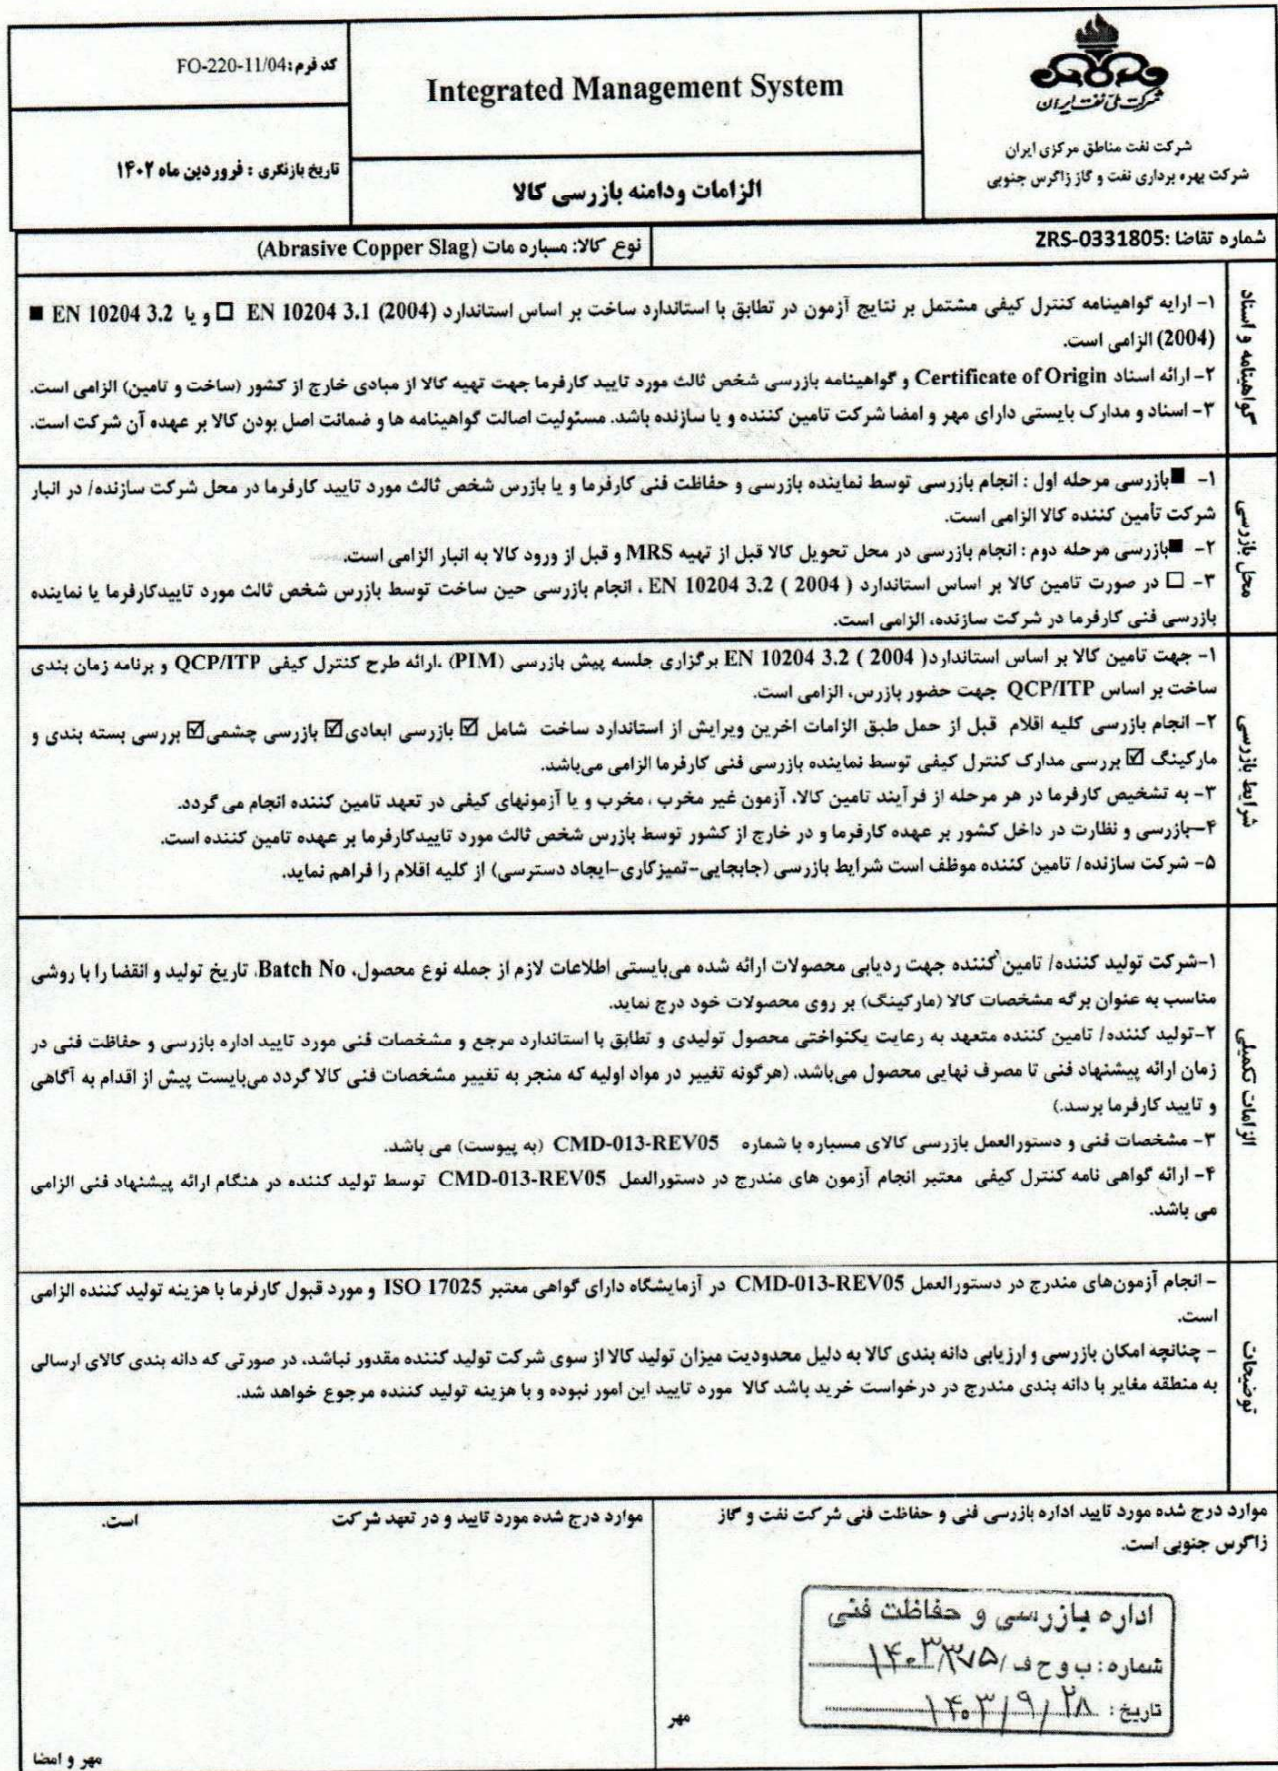 شرکت ملی نفت ایران
شرکت نفت مناطق مرکزی ایران
شرکت بهره برداری نفت و گاز زاگرس جنوبی
Integrated Management System
الزامات ودامنه بازرسی کالا
کد فرم: FO-220-11/04
تاریخ بازنگری : فروردین ماه ۱۴۰۲
شماره تقاضا :ZRS-0331805
نوع کالا: مسباره مات (Abrasive Copper Slag)
گواهینامه و اسناد
۱- ارایه گواهینامه کنترل کیفی مشتمل بر نتایج آزمون در تطابق با استاندارد ساخت بر اساس استاندارد EN 10204 3.1 (2004) ☐ و یا EN 10204 3.2 ■
(2004) الزامی است.
۲- ارائه اسناد Certificate of Origin و گواهینامه بازرسی شخص ثالث مورد تایید کارفرما جهت تهیه کالا از مبادی خارج از کشور (ساخت و تامین) الزامی است.
۳- اسناد و مدارک بایستی دارای مهر و امضا شرکت تامین کننده و یا سازنده باشد. مسئولیت اصالت گواهینامه ها و ضمانت اصل بودن کالا بر عهده آن شرکت است.
محل بازرسی
۱- ■بازرسی مرحله اول : انجام بازرسی توسط نماینده بازرسی و حفاظت فنی کارفرما و یا بازرس شخص ثالث مورد تایید کارفرما در محل شرکت سازنده/ در انبار
شرکت تأمین کننده کالا الزامی است.
۲- ■بازرسی مرحله دوم : انجام بازرسی در محل تحویل کالا قبل از تهیه MRS و قبل از ورود کالا به انبار الزامی است.
۳- ☐ در صورت تامین کالا بر اساس استاندارد EN 10204 3.2 ( 2004 ) ، انجام بازرسی حین ساخت توسط بازرس شخص ثالث مورد تاییدکارفرما یا نماینده
بازرسی فنی کارفرما در شرکت سازنده، الزامی است.
شرایط بازرسی
۱- جهت تامین کالا بر اساس استاندارد( 2004 ) EN 10204 3.2 برگزاری جلسه پیش بازرسی (PIM) ،ارائه طرح کنترل کیفی QCP/ITP و برنامه زمان بندی
ساخت بر اساس QCP/ITP جهت حضور بازرس، الزامی است.
۲- انجام بازرسی کلیه اقلام قبل از حمل طبق الزامات اخرین ویرایش از استاندارد ساخت شامل ☑ بازرسی ابعادی☑ بازرسی چشمی☑ بررسی بسته بندی و
مارکینگ ☑ بررسی مدارک کنترل کیفی توسط نماینده بازرسی فنی کارفرما الزامی می‌باشد.
۳- به تشخیص کارفرما در هر مرحله از فرآیند تامین کالا، آزمون غیر مخرب ، مخرب و یا آزمونهای کیفی در تعهد تامین کننده انجام می گردد.
۴–بازرسی و نظارت در داخل کشور بر عهده کارفرما و در خارج از کشور توسط بازرس شخص ثالث مورد تاییدکارفرما بر عهده تامین کننده است.
۵- شرکت سازنده/ تامین کننده موظف است شرایط بازرسی (جابجایی-تمیزکاری-ایجاد دسترسی) از کلیه اقلام را فراهم نماید.
الزامات تکمیلی
۱-شرکت تولید کننده/ تامین کننده جهت ردیابی محصولات ارائه شده می‌بایستی اطلاعات لازم از جمله نوع محصول، Batch No، تاریخ تولید و انقضا را با روشی
مناسب به عنوان برگه مشخصات کالا (مارکینگ) بر روی محصولات خود درج نماید.
۲-تولید کننده/ تامین کننده متعهد به رعایت یکنواختی محصول تولیدی و تطابق با استاندارد مرجع و مشخصات فنی مورد تایید اداره بازرسی و حفاظت فنی در
زمان ارائه پیشنهاد فنی تا مصرف نهایی محصول می‌باشد. (هرگونه تغییر در مواد اولیه که منجر به تغییر مشخصات فنی کالا گردد می‌بایست پیش از اقدام به آگاهی
و تایید کارفرما برسد.)
۳- مشخصات فنی و دستورالعمل بازرسی کالای مسباره با شماره CMD-013-REV05 (به پیوست) می باشد.
۴- ارائه گواهی نامه کنترل کیفی معتبر انجام آزمون های مندرج در دستورالعمل CMD-013-REV05 توسط تولید کننده در هنگام ارائه پیشنهاد فنی الزامی
می باشد.
توضیحات
- انجام آزمون‌های مندرج در دستورالعمل CMD-013-REV05 در آزمایشگاه دارای گواهی معتبر ISO 17025 و مورد قبول کارفرما با هزینه تولید کننده الزامی
است.
- چنانچه امکان بازرسی و ارزیابی دانه بندی کالا به دلیل محدودیت میزان تولید کالا از سوی شرکت تولید کننده مقدور نباشد، در صورتی که دانه بندی کالای ارسالی
به منطقه مغایر با دانه بندی مندرج در درخواست خرید باشد کالا مورد تایید این امور نبوده و با هزینه تولید کننده مرجوع خواهد شد.
موارد درج شده مورد تایید اداره بازرسی فنی و حفاظت فنی شرکت نفت و گاز
زاگرس جنوبی است.
اداره بازرسی و حفاظت فنی
شماره: ب و ح ف /۱۴۰۳/۳۷۵
تاریخ: ۱۴۰۳/۹/۲۸
مهر
موارد درج شده مورد تایید و در تعهد شرکت است.
مهر و امضا